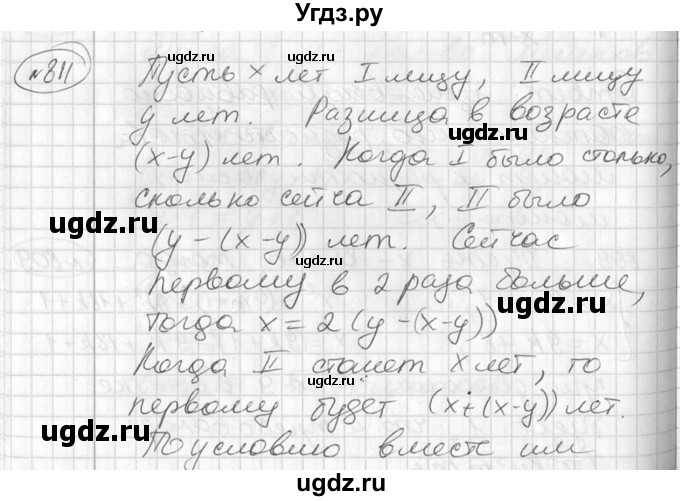 Угдз.ру
№811
Пусть x лет I лицу, II лицу
y лет. Разница в возрасте
(x-y) лет. Когда I было столько,
сколько сейча II, II было
(y-(x-y)) лет. Сейчас
первому в 2 раза больше,
тогда x = 2(y-(x-y))
Когда II станет x лет, то
первому будет (x+(x-y)) лет.
По условию вместе им
ugdz.ru
ugdz.ru
ugdz.ru
ugdz.ru
ugdz.ru
ugdz.ru
ugdz.ru
ugdz.ru
ugdz.ru
ugdz.ru
ugdz.ru